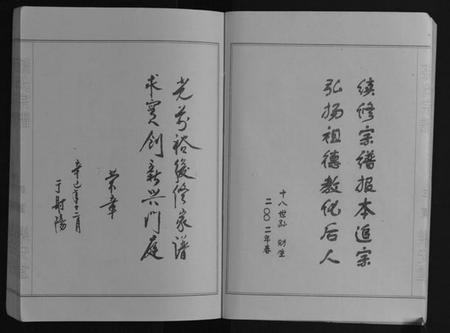 续修宗谱报本追宗
弘扬祖德教化后人
十八世孙
二〇〇二年春
光前裕後修家谱
求实创新兴门庭
荣章
辛巳年十二月
于射陽